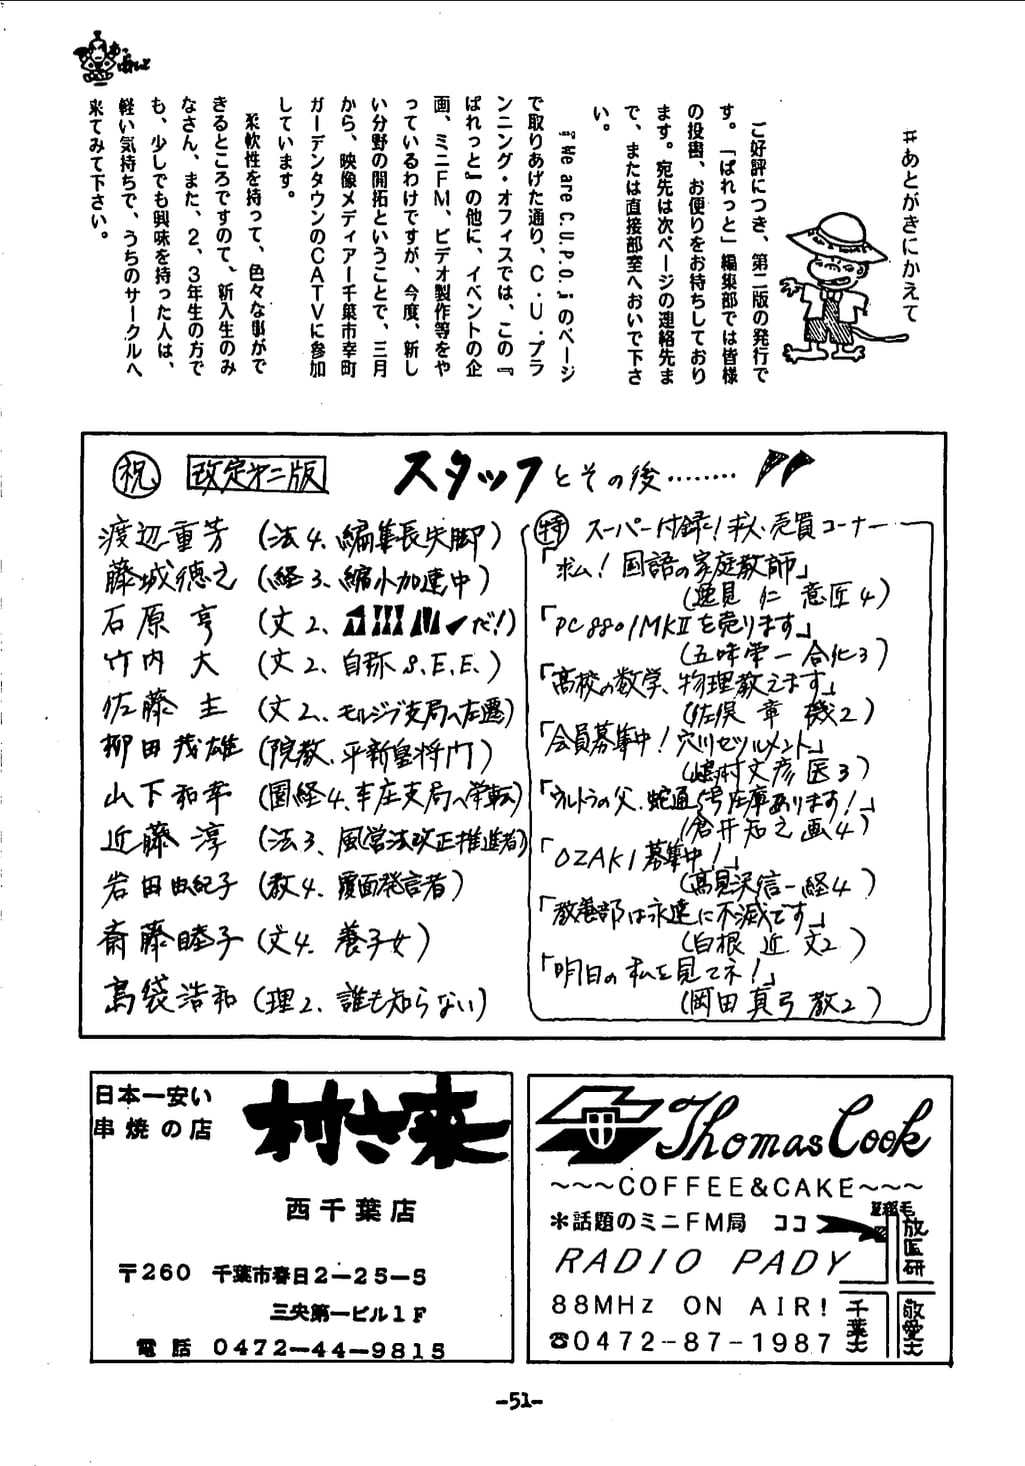 #あとがきにかえて
ご好評につき、第二版の発行で
す。「ぱれっと」編集部では皆様
の投書、お便りをお待ちしており
ます。宛先は次ページの連絡先ま
で、または直接部室へおいで下さ
い。
『We are C.U.P.O.』のページ
で取りあげた通り、C・U・プラ
ンニング・オフィスでは、この『
ぱれっと』の他に、イベントの企
画、ミニFM、ビデオ製作等をや
っているわけですが、今度、新し
い分野の開拓ということで、三月
から、映像メディアー千葉市幸町
ガーデンタウンのCATVに参加
しています。
柔軟性を持って、色々な事がで
きるところですので、新入生のみ
なさん、また、2、3年生の方で
も、少しでも興味を持った人は、
軽い気持ちで、うちのサークルへ
来てみて下さい。
祝 改定第二版 スタッフとその後……‥!!
渡辺重芳 (法4、編集長失脚)
藤城徳之 (経3、縮小加速中)
石原亨 (文2、だ!)
竹内大 (文2、自称S.E.E.)
佐藤圭 (文2、モルジブ支局へ左遷)
柳田茂雄 (院教、平新皇将門)
山下和幸 (園経4、本庄支局へ栄転)
近藤淳 (法3、風営法改正推進者)
岩田由紀子 (教4、覆面発言者)
斎藤睦子 (文4、養子女)
島袋浩和 (理2、誰も知らない)
特 スーパー付録!求人・売買コーナー
「求ム!国語の家庭教師」
(逸見 仁 意匠4)
「PC8801MKIIを売ります」
(五味栄一 合化3)
「高校の数学、物理教えます」
(佐俣 章 機2)
「会員募集中!穴川セツルメント」
(嶋村文彦 医3)
「ウルトラの父、蛇通1号在庫あります!」
(倉井知之 画4)
「OZAKI募集中!」
(高見沢信一 経4)
「教養部は永遠に不滅です」
(白根 近 文2)
「明日の私を見てネ!」
(岡田真弓 教2)
日本一安い
串焼の店
村さ来
西千葉店
〒260 千葉市春日2−25−5
三央第一ビル1F
電話 0472−44−9815
Thomas Cook
~~~COFFEE&CAKE~~~
*話題のミニFM局 ココ
RADIO PADY
88MHz ON AIR!
☎0472-87-1987
至稲毛
放医研
千葉大
敬愛大
-51-